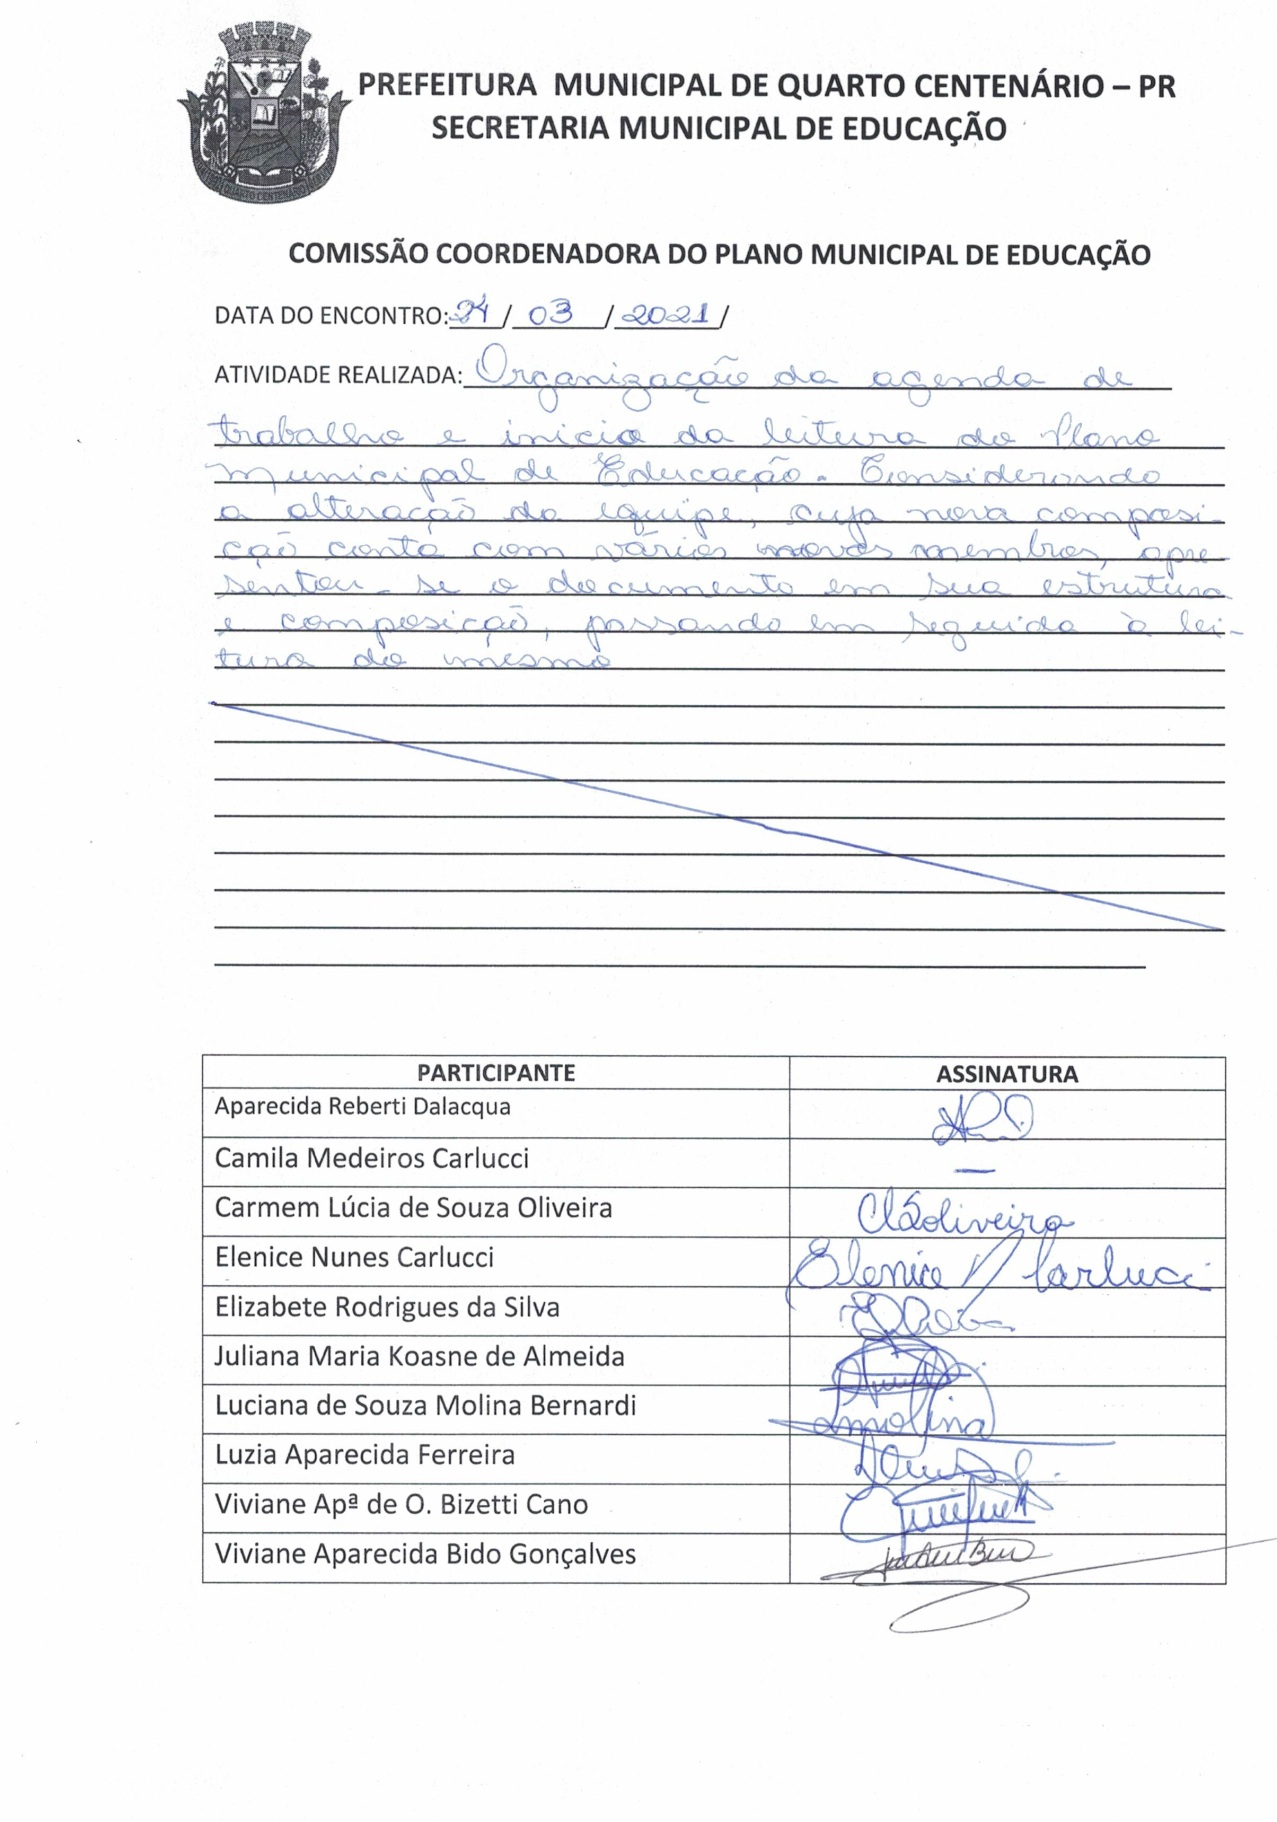 PREFEITURA MUNICIPAL DE QUARTO CENTENÁRIO – PR
SECRETARIA MUNICIPAL DE EDUCAÇÃO
QUARTO CENTENÁRIO
COMISSÃO COORDENADORA DO PLANO MUNICIPAL DE EDUCAÇÃO
DATA DO ENCONTRO: 24 / 03 / 2021 /
ATIVIDADE REALIZADA: Organização da agenda de
trabalho e início da leitura do Plano
Municipal de Educação. Considerando
a alteração da equipe, cuja nova composi-
ção conta com vários novos membros, apre
sentou-se o documento em sua estrutura
e composição, passando em seguida à lei-
tura do mesmo
PARTICIPANTE ASSINATURA
Aparecida Reberti Dalacqua
Camila Medeiros Carlucci —
Carmem Lúcia de Souza Oliveira ClSoliveira
Elenice Nunes Carlucci Elenice N Carlucci
Elizabete Rodrigues da Silva
Juliana Maria Koasne de Almeida
Luciana de Souza Molina Bernardi Lmolina
Luzia Aparecida Ferreira
Viviane Apª de O. Bizetti Cano
Viviane Aparecida Bido Gonçalves